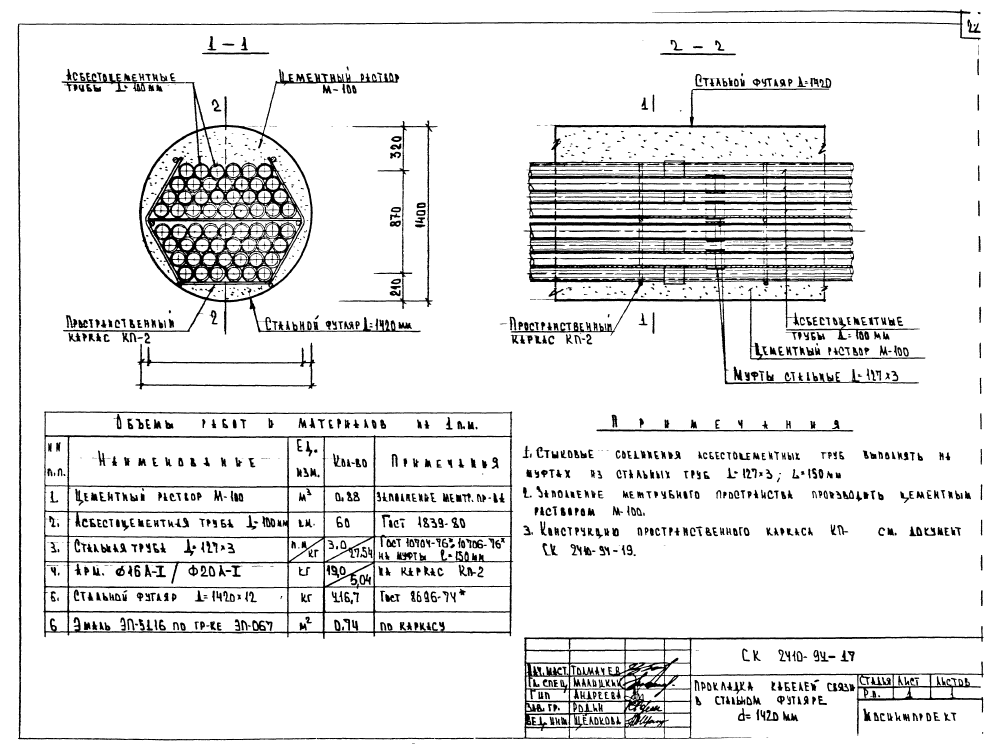 1-1
2-2
АСБЕСТОЦЕМЕНТНЫЕ
ТРУБЫ Д=100мм
ЦЕМЕНТНЫЙ РАСТВОР
М-100
2
2
320
870
210
1400
ПРОСТРАНСТВЕННЫЙ
КАРКАС КП-2
СТАЛЬНОЙ ФУТЛЯР Д=1420мм
СТАЛЬНОЙ ФУТЛЯР Д=1420
1
1
ПРОСТРАНСТВЕННЫЙ
КАРКАС КП-2
АСБЕСТОЦЕМЕНТНЫЕ
ТРУБЫ Д=100мм
ЦЕМЕНТНЫЙ РАСТВОР М-100
МУФТЫ СТАЛЬНЫЕ Д=127×3
ОБЪЕМЫ РАБОТ И МАТЕРИАЛОВ НА 1п.м.
NN п.п. НАИМЕНОВАНИЕ ЕД. ИЗМ. КОЛ-ВО ПРИМЕЧАНИЯ
1. ЦЕМЕНТНЫЙ РАСТВОР М-100 м³ 0.88 ЗАПОЛНЕНИЕ МЕЖТР. ПР-ВА
2. АСБЕСТОЦЕМЕНТНАЯ ТРУБА Д=100мм 60 ГОСТ 1839-80
3. СТАЛЬНАЯ ТРУБА Д=127×3 п.м./кг 3,0/27.54 ГОСТ 10704-76* 10706-76*
НА МУФТЫ ℓ=150мм
4. АРМ. Ф16А-I / Ф20А-I кг 19,0/5,04 НА КАРКАС КП-2
5. СТАЛЬНОЙ ФУТЛЯР Д=1420×12 кг 416,7 ГОСТ 8696-74*
6 ЭМАЛЬ ЭП-5116 ПО ГР-КЕ ЭП-067 м² 0.74 ПО КАРКАСУ
ПРИМЕЧАНИЯ
1. СТЫКОВЫЕ СОЕДИНЕНИЯ АСБЕСТОЦЕМЕНТНЫХ ТРУБ ВЫПОЛНЯТЬ НА
МУФТАХ ИЗ СТАЛЬНЫХ ТРУБ Д=127×3; L=150мм
2. ЗАПОЛНЕНИЕ МЕЖТРУБНОГО ПРОСТРАНСТВА ПРОИЗВОДИТЬ ЦЕМЕНТНЫМ
РАСТВОРОМ М-100.
3. КОНСТРУКЦИЮ ПРОСТРАНСТВЕННОГО КАРКАСА КП- СМ. ДОКУМЕНТ
СК 2410-94-19.
СК 2410-94-17
НАЧ. МАСТ. ТОЛМАЧЕВ
ГЛ. СПЕЦ. МАЛИЦКИЙ
ГИП АНДРЕЕВА
ЗАВ. ГР. РОДИН
ВЕД. ИНЖ ЩЁЛОКОВА
ПРОКЛАДКА КАБЕЛЕЙ СВЯЗИ
В СТАЛЬНОМ ФУТЛЯРЕ
d=1420 мм
СТАДИЯ ЛИСТ ЛИСТОВ
Р.п. 1 1
МОСИНЖПРОЕКТ